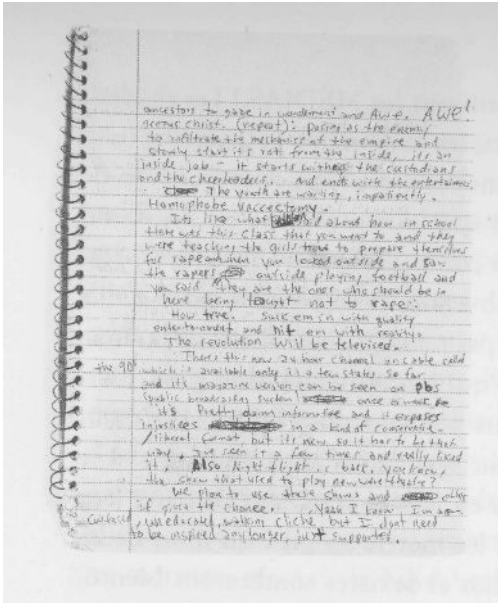 ancestors to gaze in wonderment and Awe. AWE!
Jesus Christ. (repeat): posing as the enemy
to infiltrate the mechanics of the empire and
slowly start its rot from the inside, its an
inside job - it starts with the custodians
and the cheerleaders. And ends with the entertainers
The youth are waiting, impatiently.
Homophobe Vaccectomy.
Its like what said about how in school
there was this class that you went to and they
were teaching the girls to prepare themselves
for rape and when you looked outside and saw
the rapers outside playing football and
you said they are the ones who should be in
here being taught not to rape.
How true. Suck em in with quality
entertainment and hit em with reality.
The revolution will be televised.
Theres this new 24 hour channel on cable calld
the 90's which is available only in a few states so far
and it's magazine version can be seen on Pbs
(public broadcasting system) once a week
it's Pretty damn informative and it exposes
injustices in a kind of conservative
/liberal format, but its new so it has to be that
way, Ive seen it a few times and really liked
it. Also Night flight is back. you know,
the show that used to play new wave theatre?
We plan to use these shows and other
if given the chance. Yeah I know, Im a
confused, uneducated, walking cliche, but I dont need
to be inspired any longer, just supported.